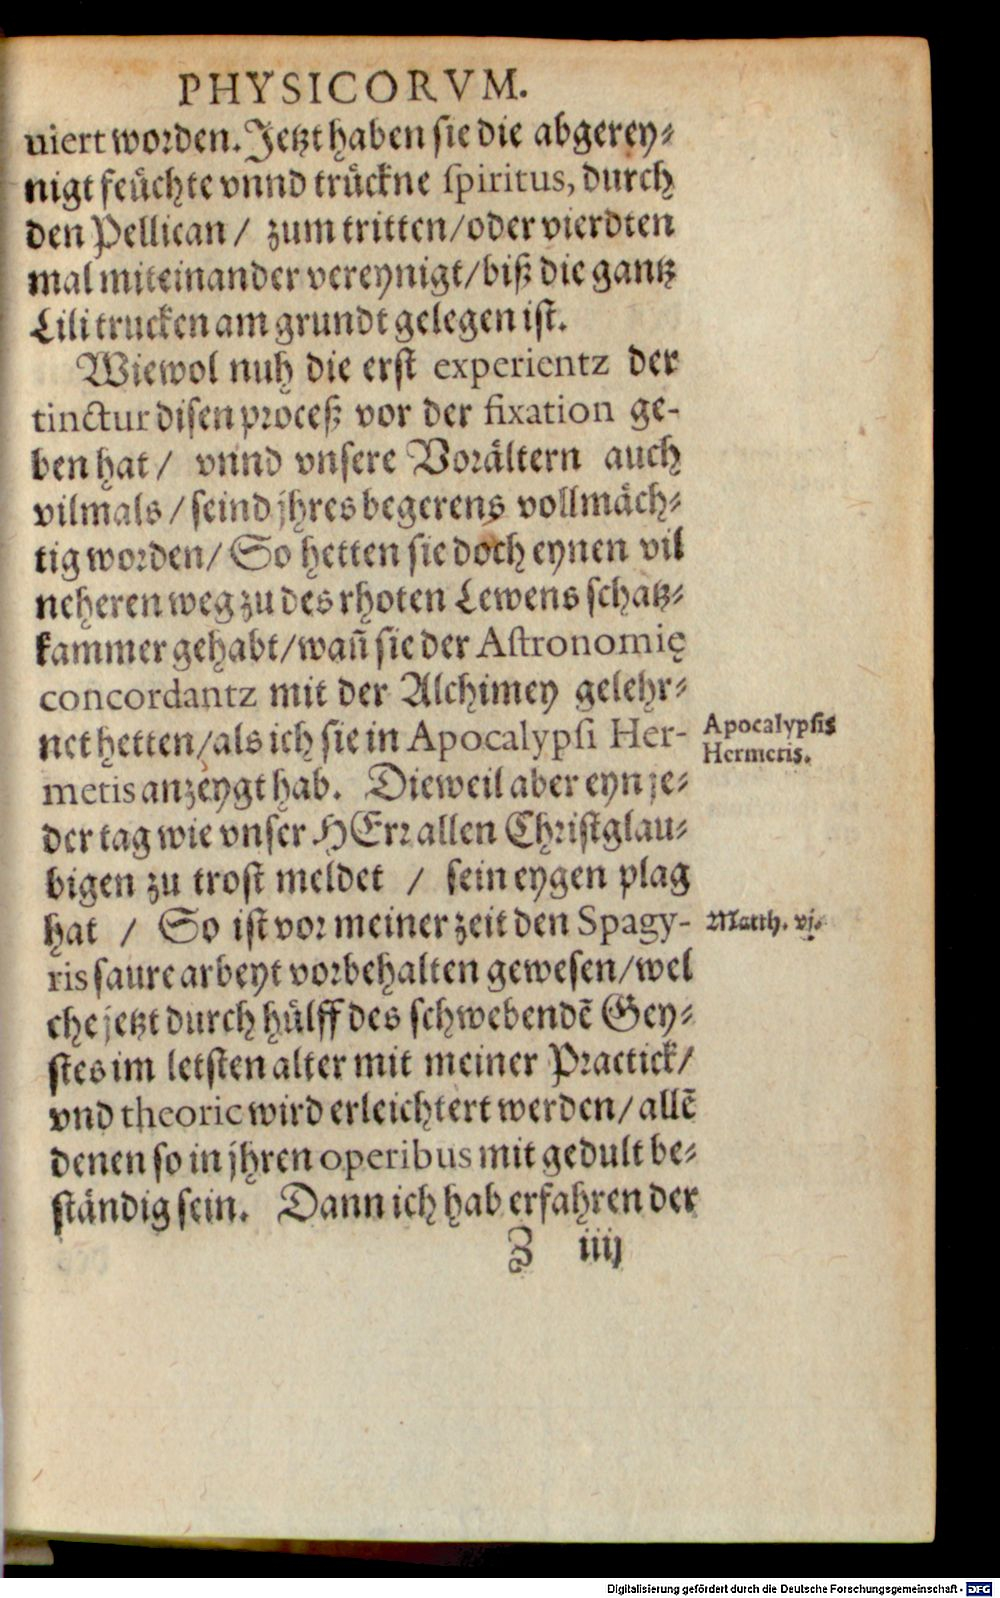 PHYSICORVM.
uiert worden. Jetzt haben sie die abgerey⸗
nigt feüchte vnnd trückne spiritus, durch
den Pellican / zum tritten/oder vierdten
mal miteinander vereynigt/biß die gantz
Lili trucken am grundt gelegen ist.
Wiewol nuh die erst experientz der
tinctur disen proceß vor der fixation ge-
ben hat / vnnd vnsere Vorältern auch
vilmals / seind jhres begerens vollmäch⸗
tig worden/ So hetten sie doch eynen vil
neheren weg zu des rhoten Lewens schatz⸗
kammer gehabt/wañ sie der Astronomię
concordantz mit der Alchimey gelehr⸗
net hetten/als ich sie in Apocalypsi Her-
metis anzeygt hab. Dieweil aber eyn je⸗
der tag wie vnser HErr allen Christglau⸗
bigen zu trost meldet / sein eygen plag
hat / So ist vor meiner zeit den Spagy-
ris saure arbeyt vorbehalten gewesen/wel
che jetzt durch hülff des schwebendẽ Gey⸗
stes im letsten alter mit meiner Practick/
vnd theoric wird erleichtert werden/ allẽ
denen so in jhren operibus mit gedult be⸗
ständig sein. Dann ich hab erfahren der
Z iiij
Apocalypsis
Hermetis.
Matth. vj.
Digitalisierung gefördert durch die Deutsche Forschungsgemeinschaft - DFG